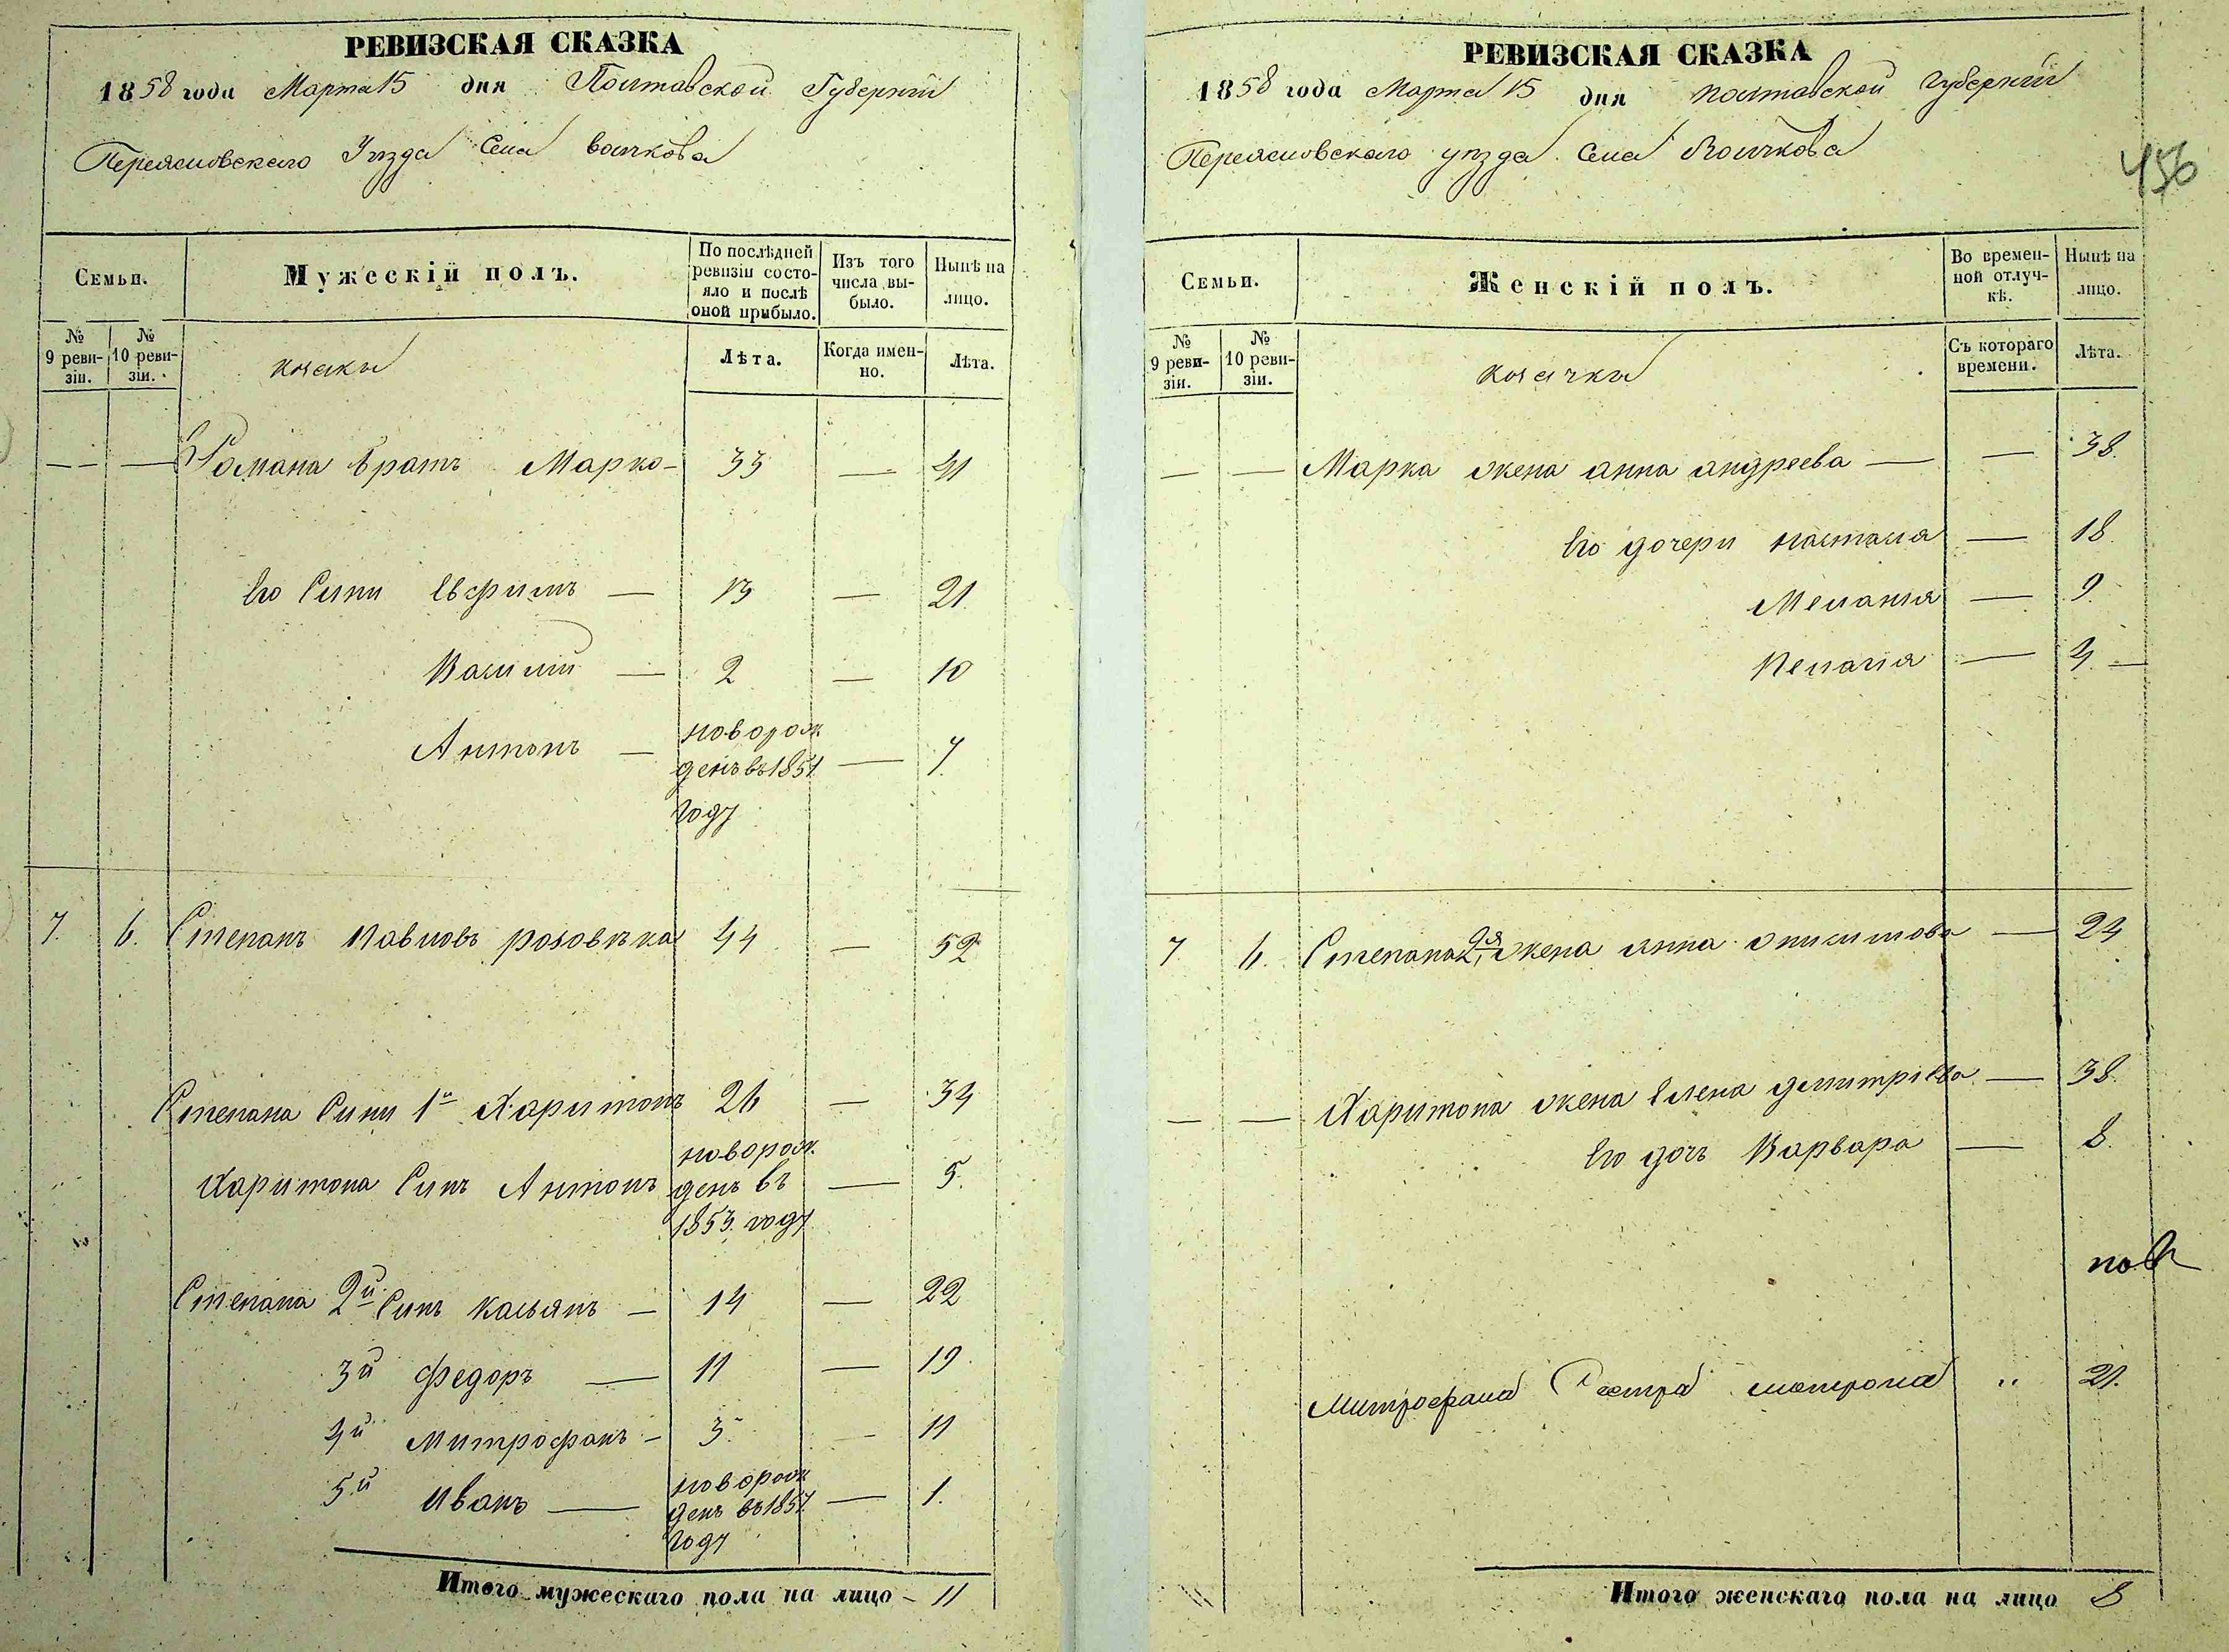 РЕВИЗСКАЯ СКАЗКА
1858 года Марта 15 дня Полтавской Губернии
Переяславского Уезда Села Волчкова
Семьи.
Мужескій полъ.
По послѣдней ревизіи состо-яло и послѣ оной прибыло.
Изъ того числа вы-было.
Нынѣ на лицо.
№ 9 реви-зіи.
№ 10 реви-зіи.
козаки
Лѣта.
Когда имен-но.
Лѣта.
— — — Романа братъ Марко — 33 — 41
Его Сини Евфимъ — 13 — 21
Василий — 2 — 10
Антонъ — новорожденъ въ 1851 году — 7
7. 6. Степанъ Павловъ 44 — 52
Степана Сини 1й Харитонъ 26 — 34
Харитона Синъ Антонъ новорожденъ въ 1853 году — 5.
Степана 2й Синъ Касьянъ — 14 — 22
3й Федоръ — 11 — 19
4й Митрофанъ — 3 — 11
5й Иванъ — новорожденъ въ 1857 году — 1.
Итого мужескаго пола на лицо — 11
РЕВИЗСКАЯ СКАЗКА
1858 года Марта 15 дня Полтавской Губернии
Переяславского уезда Села Волчкова
456
Семьи.
Женскій полъ.
Во времен-ной отлуч-кѣ.
Нынѣ на лицо.
№ 9 реви-зіи.
№ 10 реви-зіи.
козачки
Съ котораго времени.
Лѣта.
— — Марка жена анна андреева — — 38.
Его дочери наталия — 18
Мелания — 9
Пелагия — 4 —
7 6. Степана 2я жена анна — 24
— — Харитона жена Елена димитриева — 38.
Его дочь Варвара — 8.
Митрофана Сестра матрона " 21.
Итого женскаго пола на лицо 8